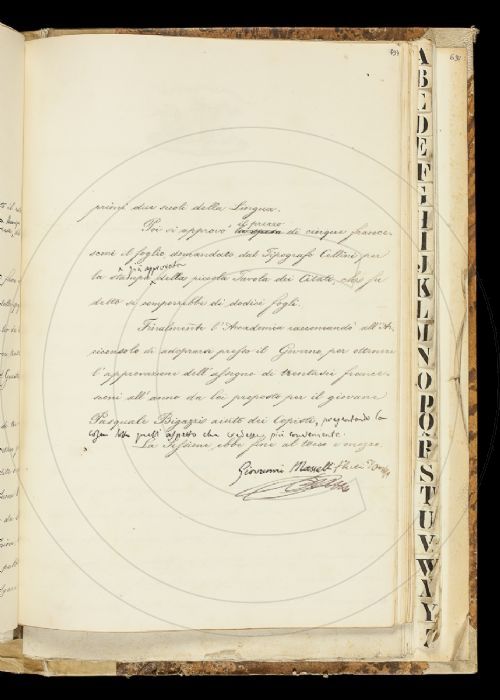 primi due secoli della Lingua.
Poi si approvò la spesa il prezzo di cinque france-
sconi il foglio domandato dal Tipografo Cellini per
la stampa già approvata della piccola Tavola dei Citati, che fu
detto si comporrebbe di dodici fogli.
Finalmente l'Accademia raccomandò all'Ar-
ciconsolo di adoprarsi presso il Governo per ottenere
l'approvazione dell'assegno di trentasei france-
sconi all'anno da lui proposto per il giovane
Pasquale Bigazzi aiuto dei Copisti, presentando la
cosa sotto quell'aspetto che credesse più conveniente.
La Sessione ebbe fine al tocco e mezzo.
Giovanni Masselli
A
B
C
D
E
F
G
H
I
J
K
L
M
N
O
P
Q
R
S
T
U
V
W
X
Y
Z